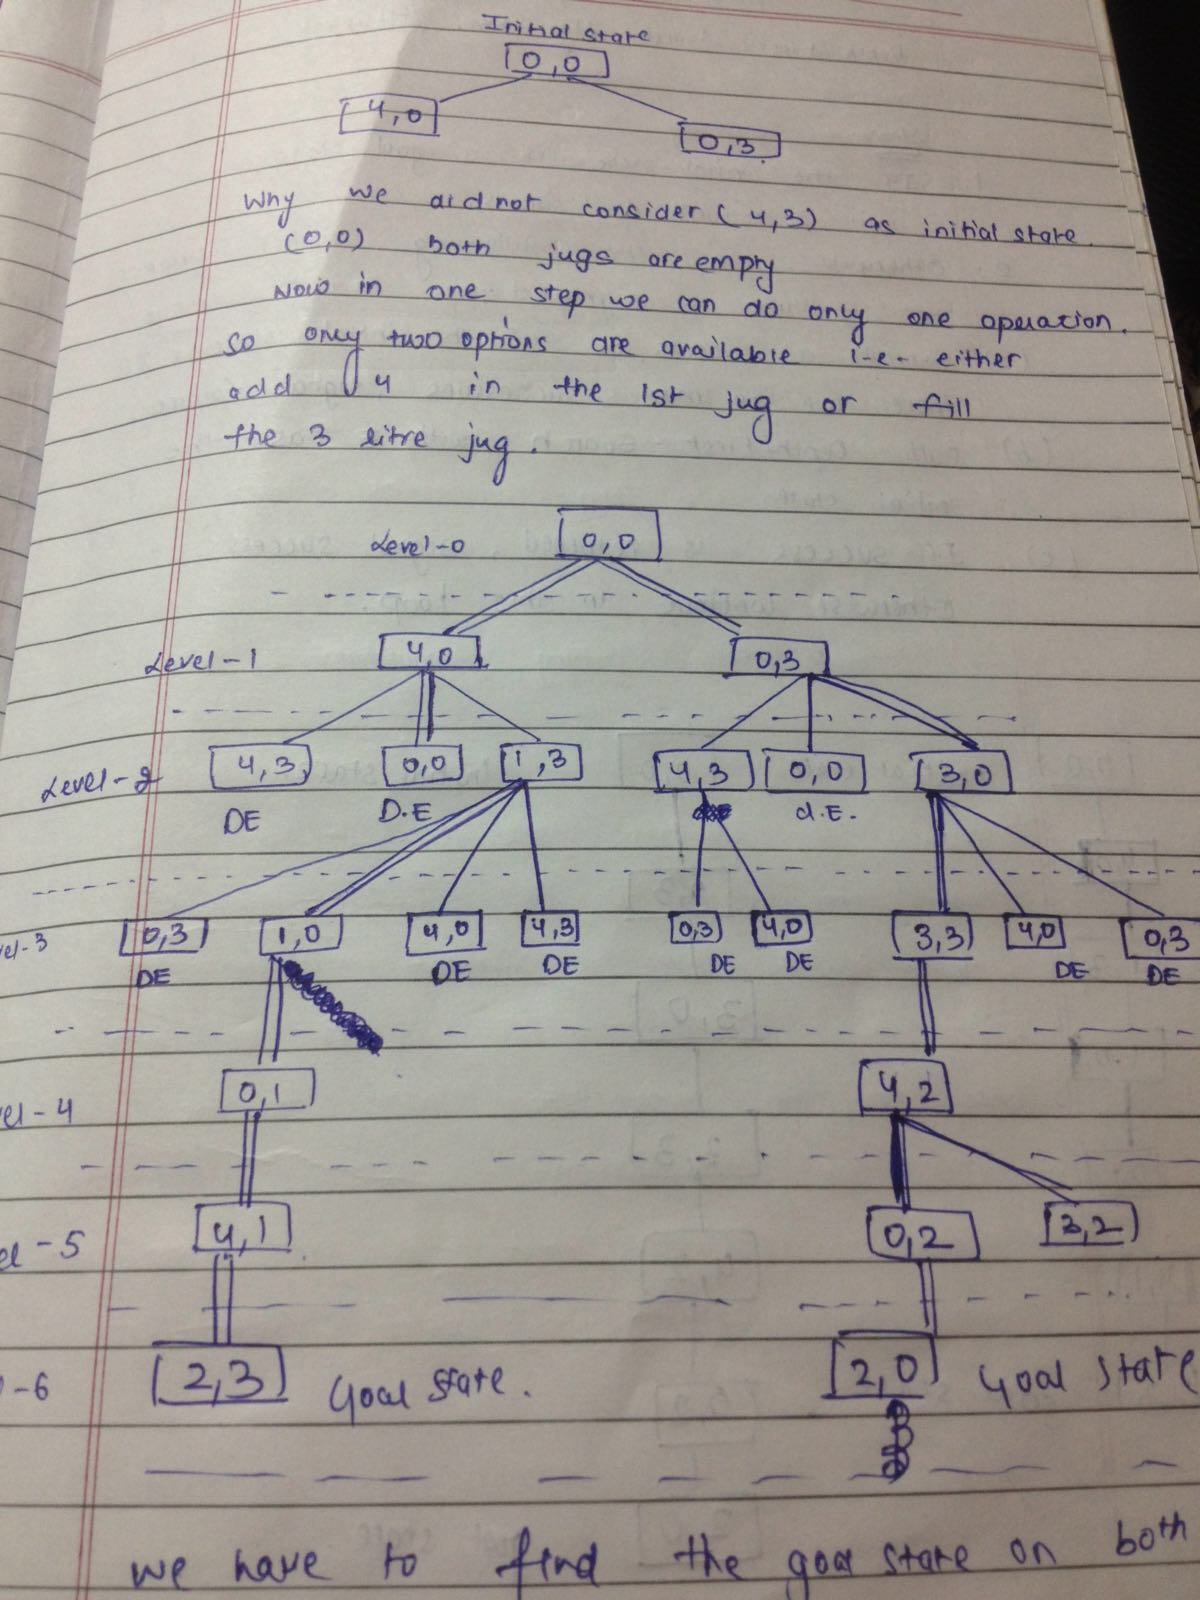 Initial state
0,0
4,0
0,3
Why we did not consider (4,3) as initial state.
(0,0) both jugs are empty
Now in one step we can do only one operation.
so only two options are available i-e- either
add 4 in the 1st jug or fill
the 3 litre jug.
Level-0 0,0
Level-1 4,0 0,3
Level-2 4,3 0,0 1,3 4,3 0,0 3,0
DE D.E d.E.
vel-3 0,3 1,0 4,0 4,3 0,3 4,0 3,3 4,0 0,3
DE DE DE DE DE DE DE
vel-4 0,1 4,2
el-5 4,1 0,2 3,2
-6 2,3 Goal state. 2,0 Goal state
we have to find the goal state on both